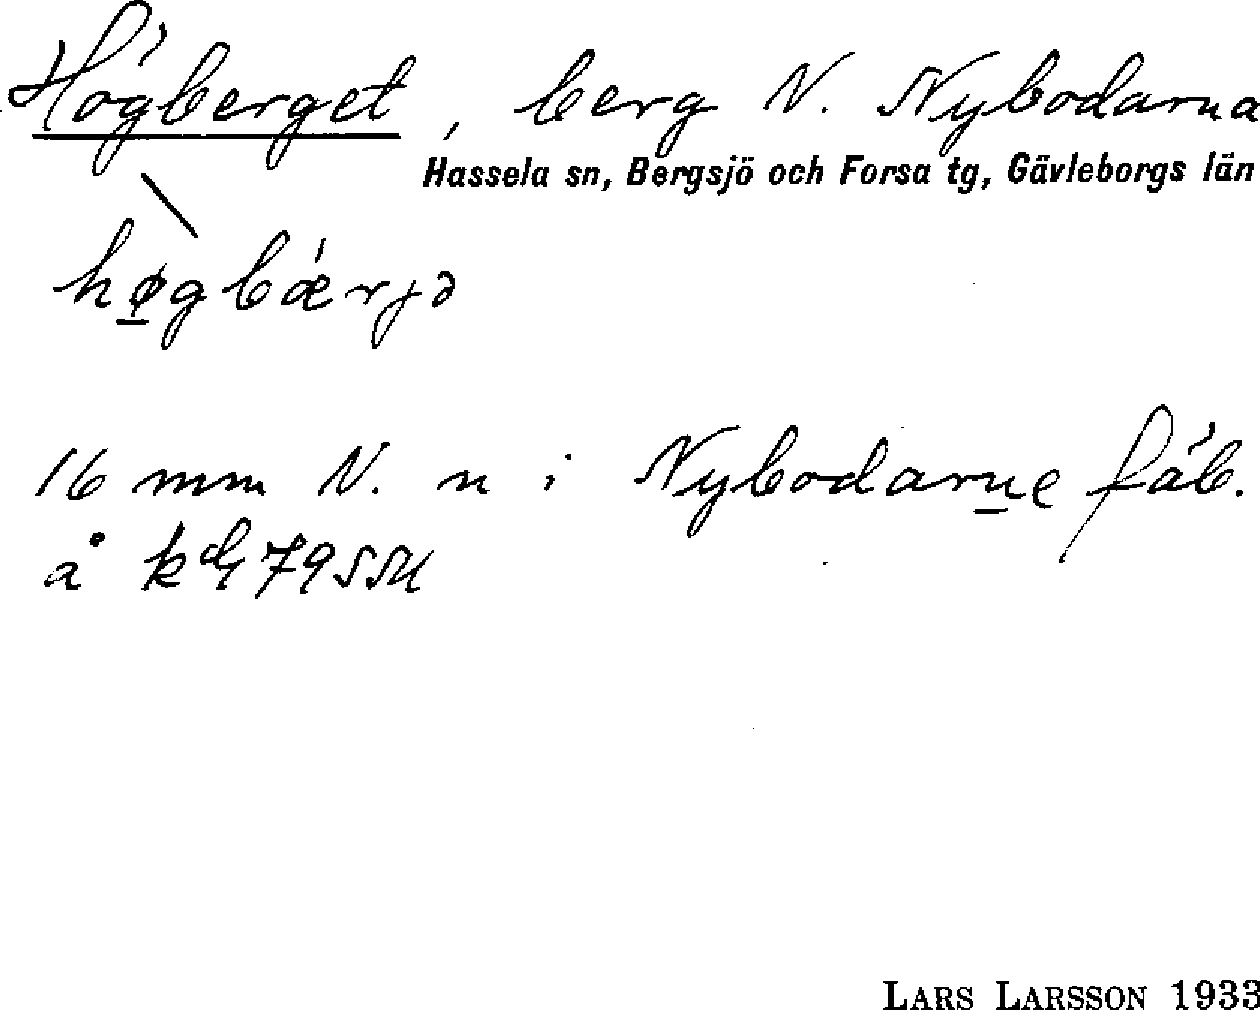 Högberget, berg N. Nybodarna
Hassela sn, Bergsjö och Forsa tg, Gävleborgs län
høgbǽrjə
16 mm N. n i Nybodarne fäb.
å
LARS LARSSON 1933